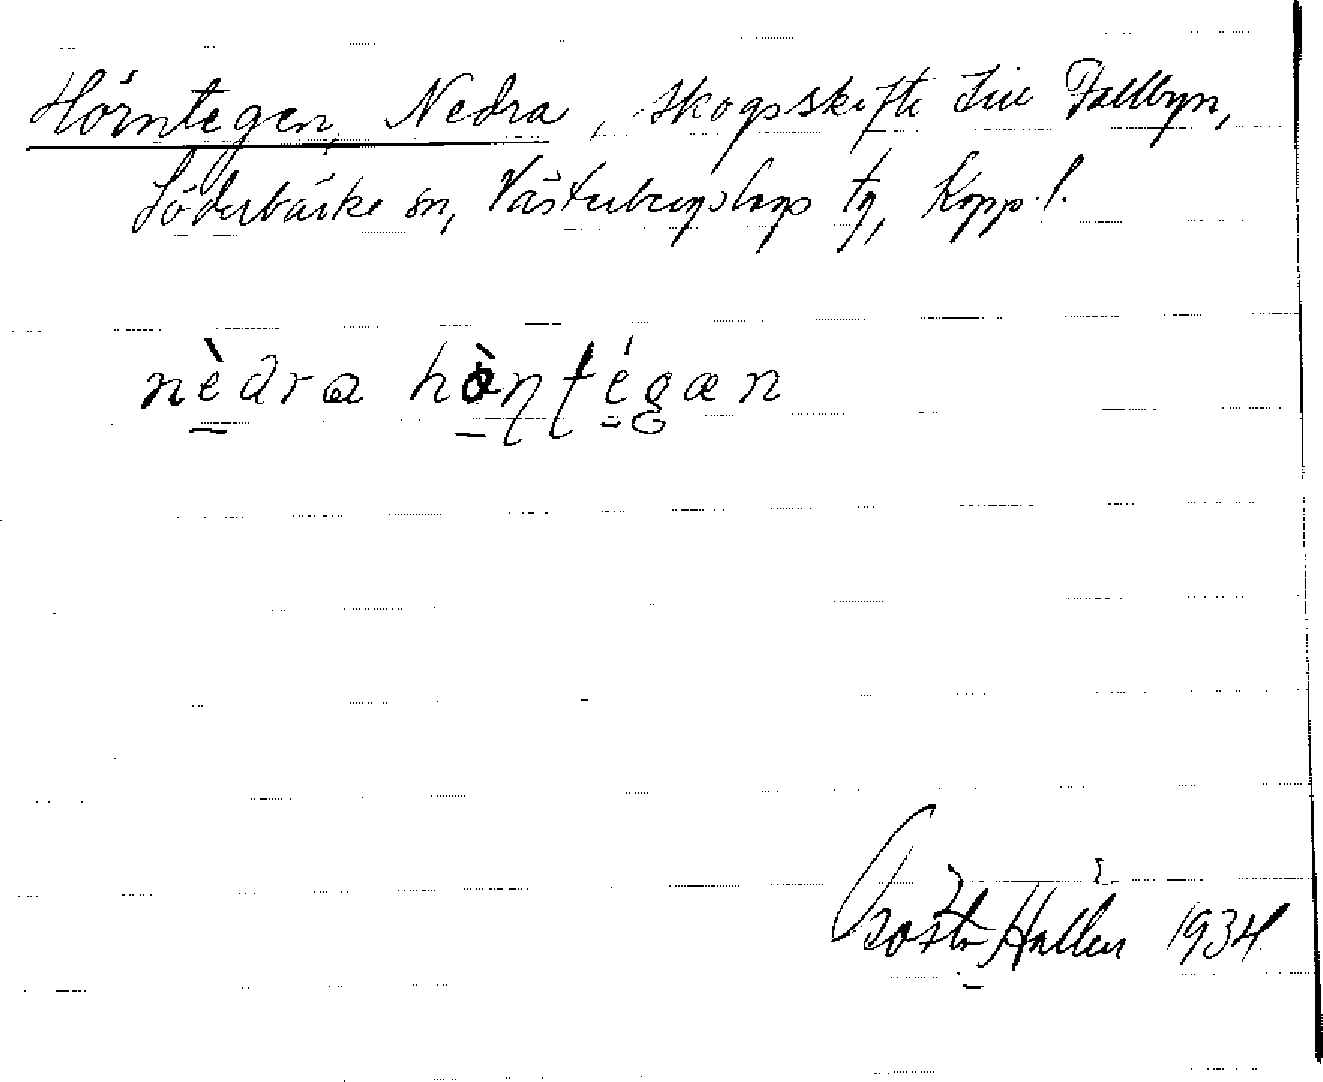 Hörntegen, Nedra, skogsskifte till Fallbyn,
Söderbärke sn, Västerbergslags tg, Kopp. l.
nèdra hòɳʈégæn
Gösta Hallén 1934